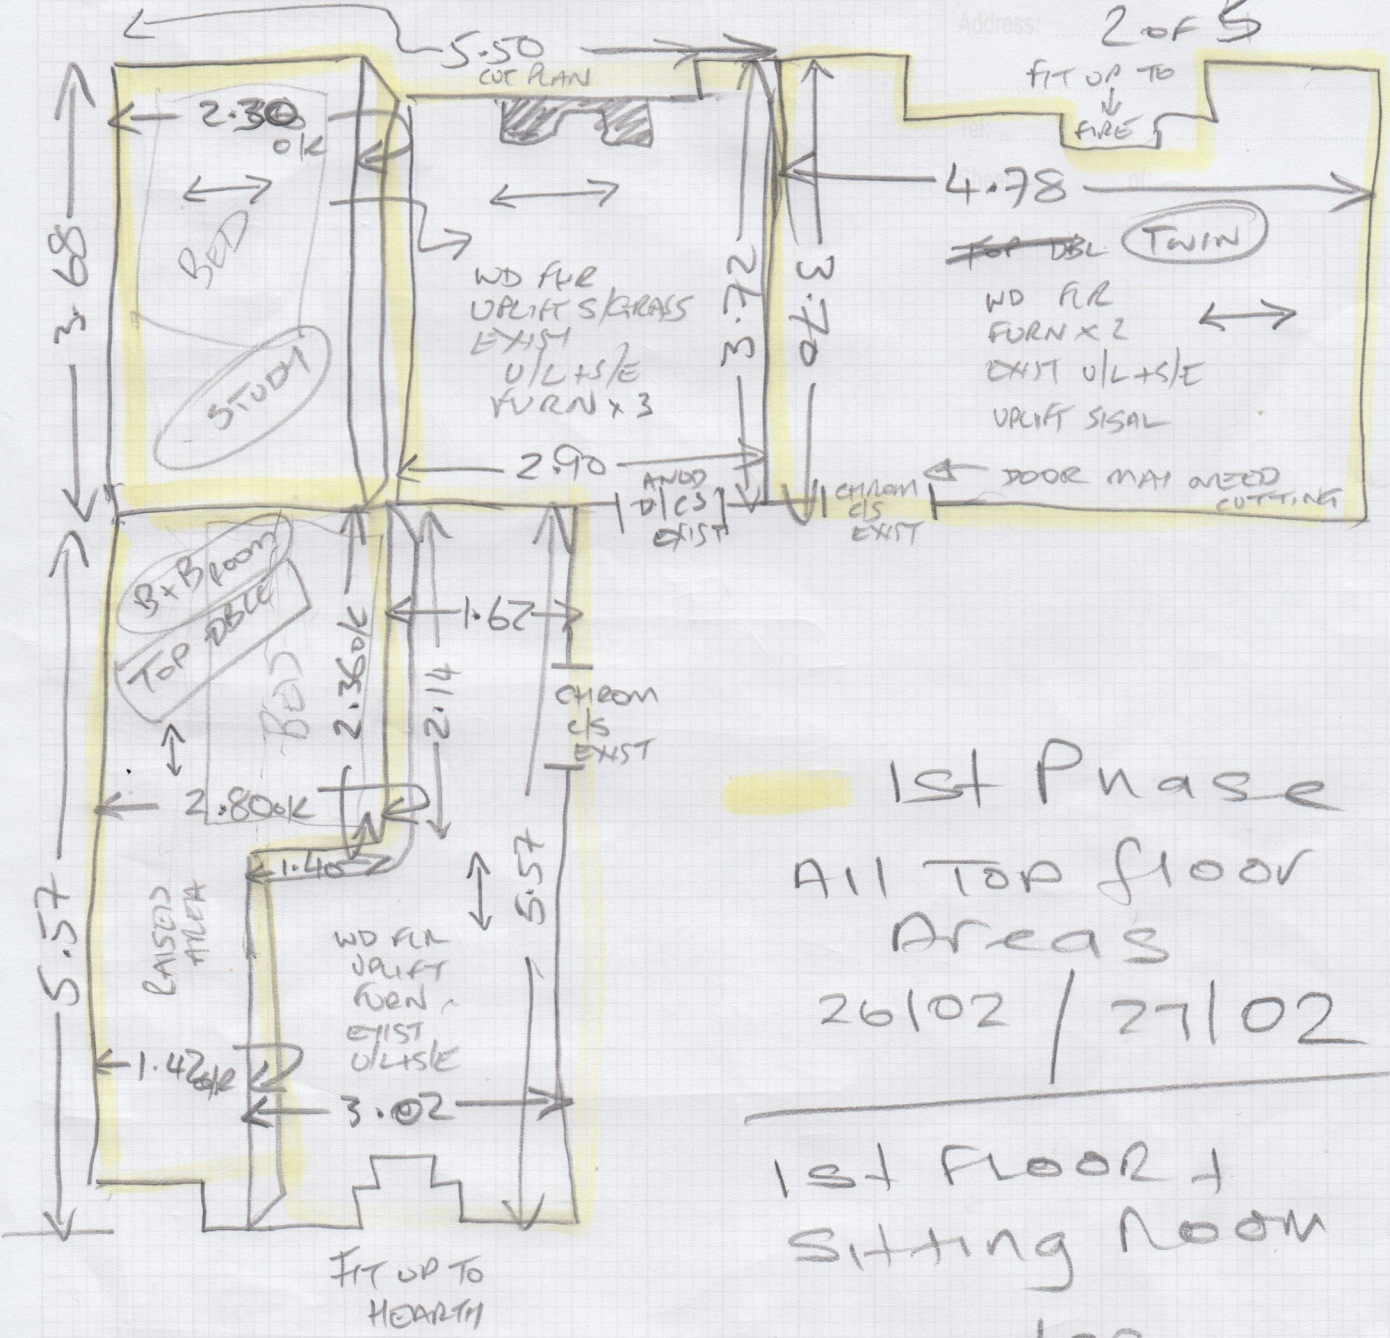 Address:
2 OF 5
5.50
CUT PLAN
FIT UP TO
FIRE
Tel:
2.30
O/K
4.78
TOP DBL
TWIN
3.68
BED
WD FLR
UPLIFT S/GRASS
EXIST
U/L+S/E
FURN x 3
3.72
3.70
WD FLR
FURN x 2
EXIST U/L+S/E
UPLIFT SISAL
STUDY
2.90
ANOD
D/CS
EXIST
CHROM
C/S
EXIST
DOOR MAY NEED
CUTTING
B+B ROOM
TOP DBLE
BED
2.36 O/K
1.62
2.14
CHROM
C/S
EXIST
2.80 O/K
1.40
5.57
5.57
RAISED
AREA
WD FLR
UPLIFT
FURN
EXIST
U/L+S/E
1.42 O/K
3.02
FIT UP TO
HEARTH
1st Phase
All Top floor
Areas
26/02 / 27/02
1st FLOOR +
Sitting Room